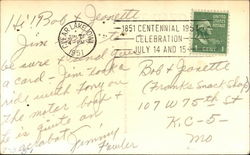 Hi! Bob & Jeanette
Jim
be sure & send you
a card - Jim took a
ride with Tony on
the motor boat &
is quite an
Jimmy
Fowler
CLEAR LAKE
1951
1851 CENTENNIAL 1951
CELEBRATION
JULY 14 AND 15
1 CENT
Bob & Jeanette
(Franks Snack Shop)
107 W 75th St
K-C-5-
Mo.